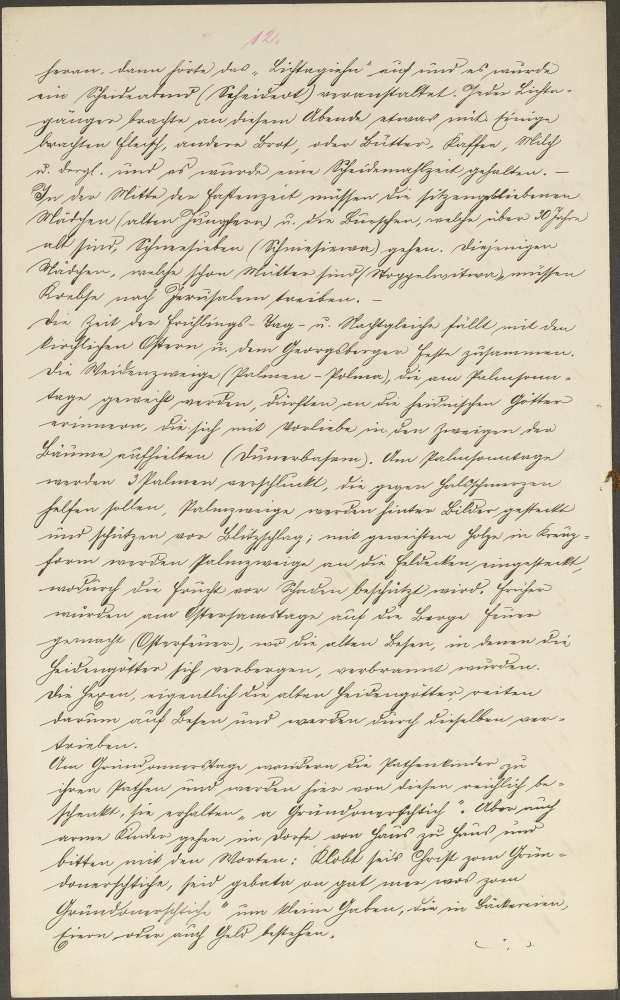 12.
heran, dann hörte das „Lichtagiehn" auf und es wurde
ein Scheideabend (Scheideot) veranstaltet. Jeder Lichten-
gänger brachte an diesem Abende etwas mit. Einige
brachten Fleisch, andere Brot, oder Butter, Kaffee, Milch
u. dergl. und es wurde eine Scheidemahlzeit gehalten. –
In der Mitte der Fastenzeit müssen die sitzengebliebenen
Mädchen (alten Jungfern) u. die Burschen, welche über 30 Jahre
alt sind, Schneesieben (Schniesiewa) gehen. Diejenigen
Mädchen, welche schon Mütter sind (Stoppelwitwa), müssen
Krebse nach Jerusalem treiben. –
Die Zeit der Frühlings-Tag- u. Nachtgleiche fällt mit den
kirchlichen Ostern u. dem Georgsberger Feste zusammen.
Die Weidenzweige (Palmen – Polma), die am Palmsonn-
tage geweiht werden, dürften an die heidnischen Götter
erinnern, die sich mit Vorliebe in den Zweigen der
Bäume aufhielten (Dunerbasem). Am Palmsonntage
werden 3 Palmen verschluckt, die gegen Halsschmerzen
helfen sollen, Palmzweige werden hinter Bilder gesteckt
und schützen vor Blitzschlag; mit geweihtem Holze in Kreuz-
form werden Palmzweige an die Feldecken eingesteckt,
wodurch die Frucht vor Schaden beschützt wird. Früher
wurden am Ostersamstage auf die Berge Feuer
gemacht (Osterfeuer), wo die alten Besen, in denen die
Heidengötter sich verbergen, verbrannt wurden.
Die Hexen, eigentlich die alten Heidengötter, reiten
darum auf Besen und werden durch dieselben ver-
trieben.
Am Gründonnerstage wandern die Pathenkinder zu
ihren Pathen und werden hier von diesen reichlich be-
schenkt, sie erhalten „a Gründonerschtich". Aber auch
arme Kinder gehen im Dorfe von Haus zu Haus und
bitten mit den Worten: Klobt seis Christ zom Grün-
donerschtiche, seid gebata on gat mer wos zom
Gründonerschtiche" um kleine Gaben, die in Bäckereien,
Eiern oder auch Geld bestehen.